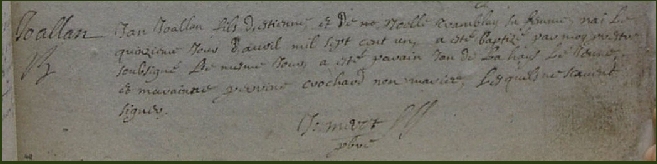 Joallan Jan Joallan fils d'estienne et de noelle sa femme, nai le
B quinzieme Jour d'avril mil sept cent un, a esté baptizé par moy prestre
soubsigné le mesme Jour, a esté parain Jan de la
et maraine perrine crochard non mariée, Lesquels ne scavent
signer
pbre